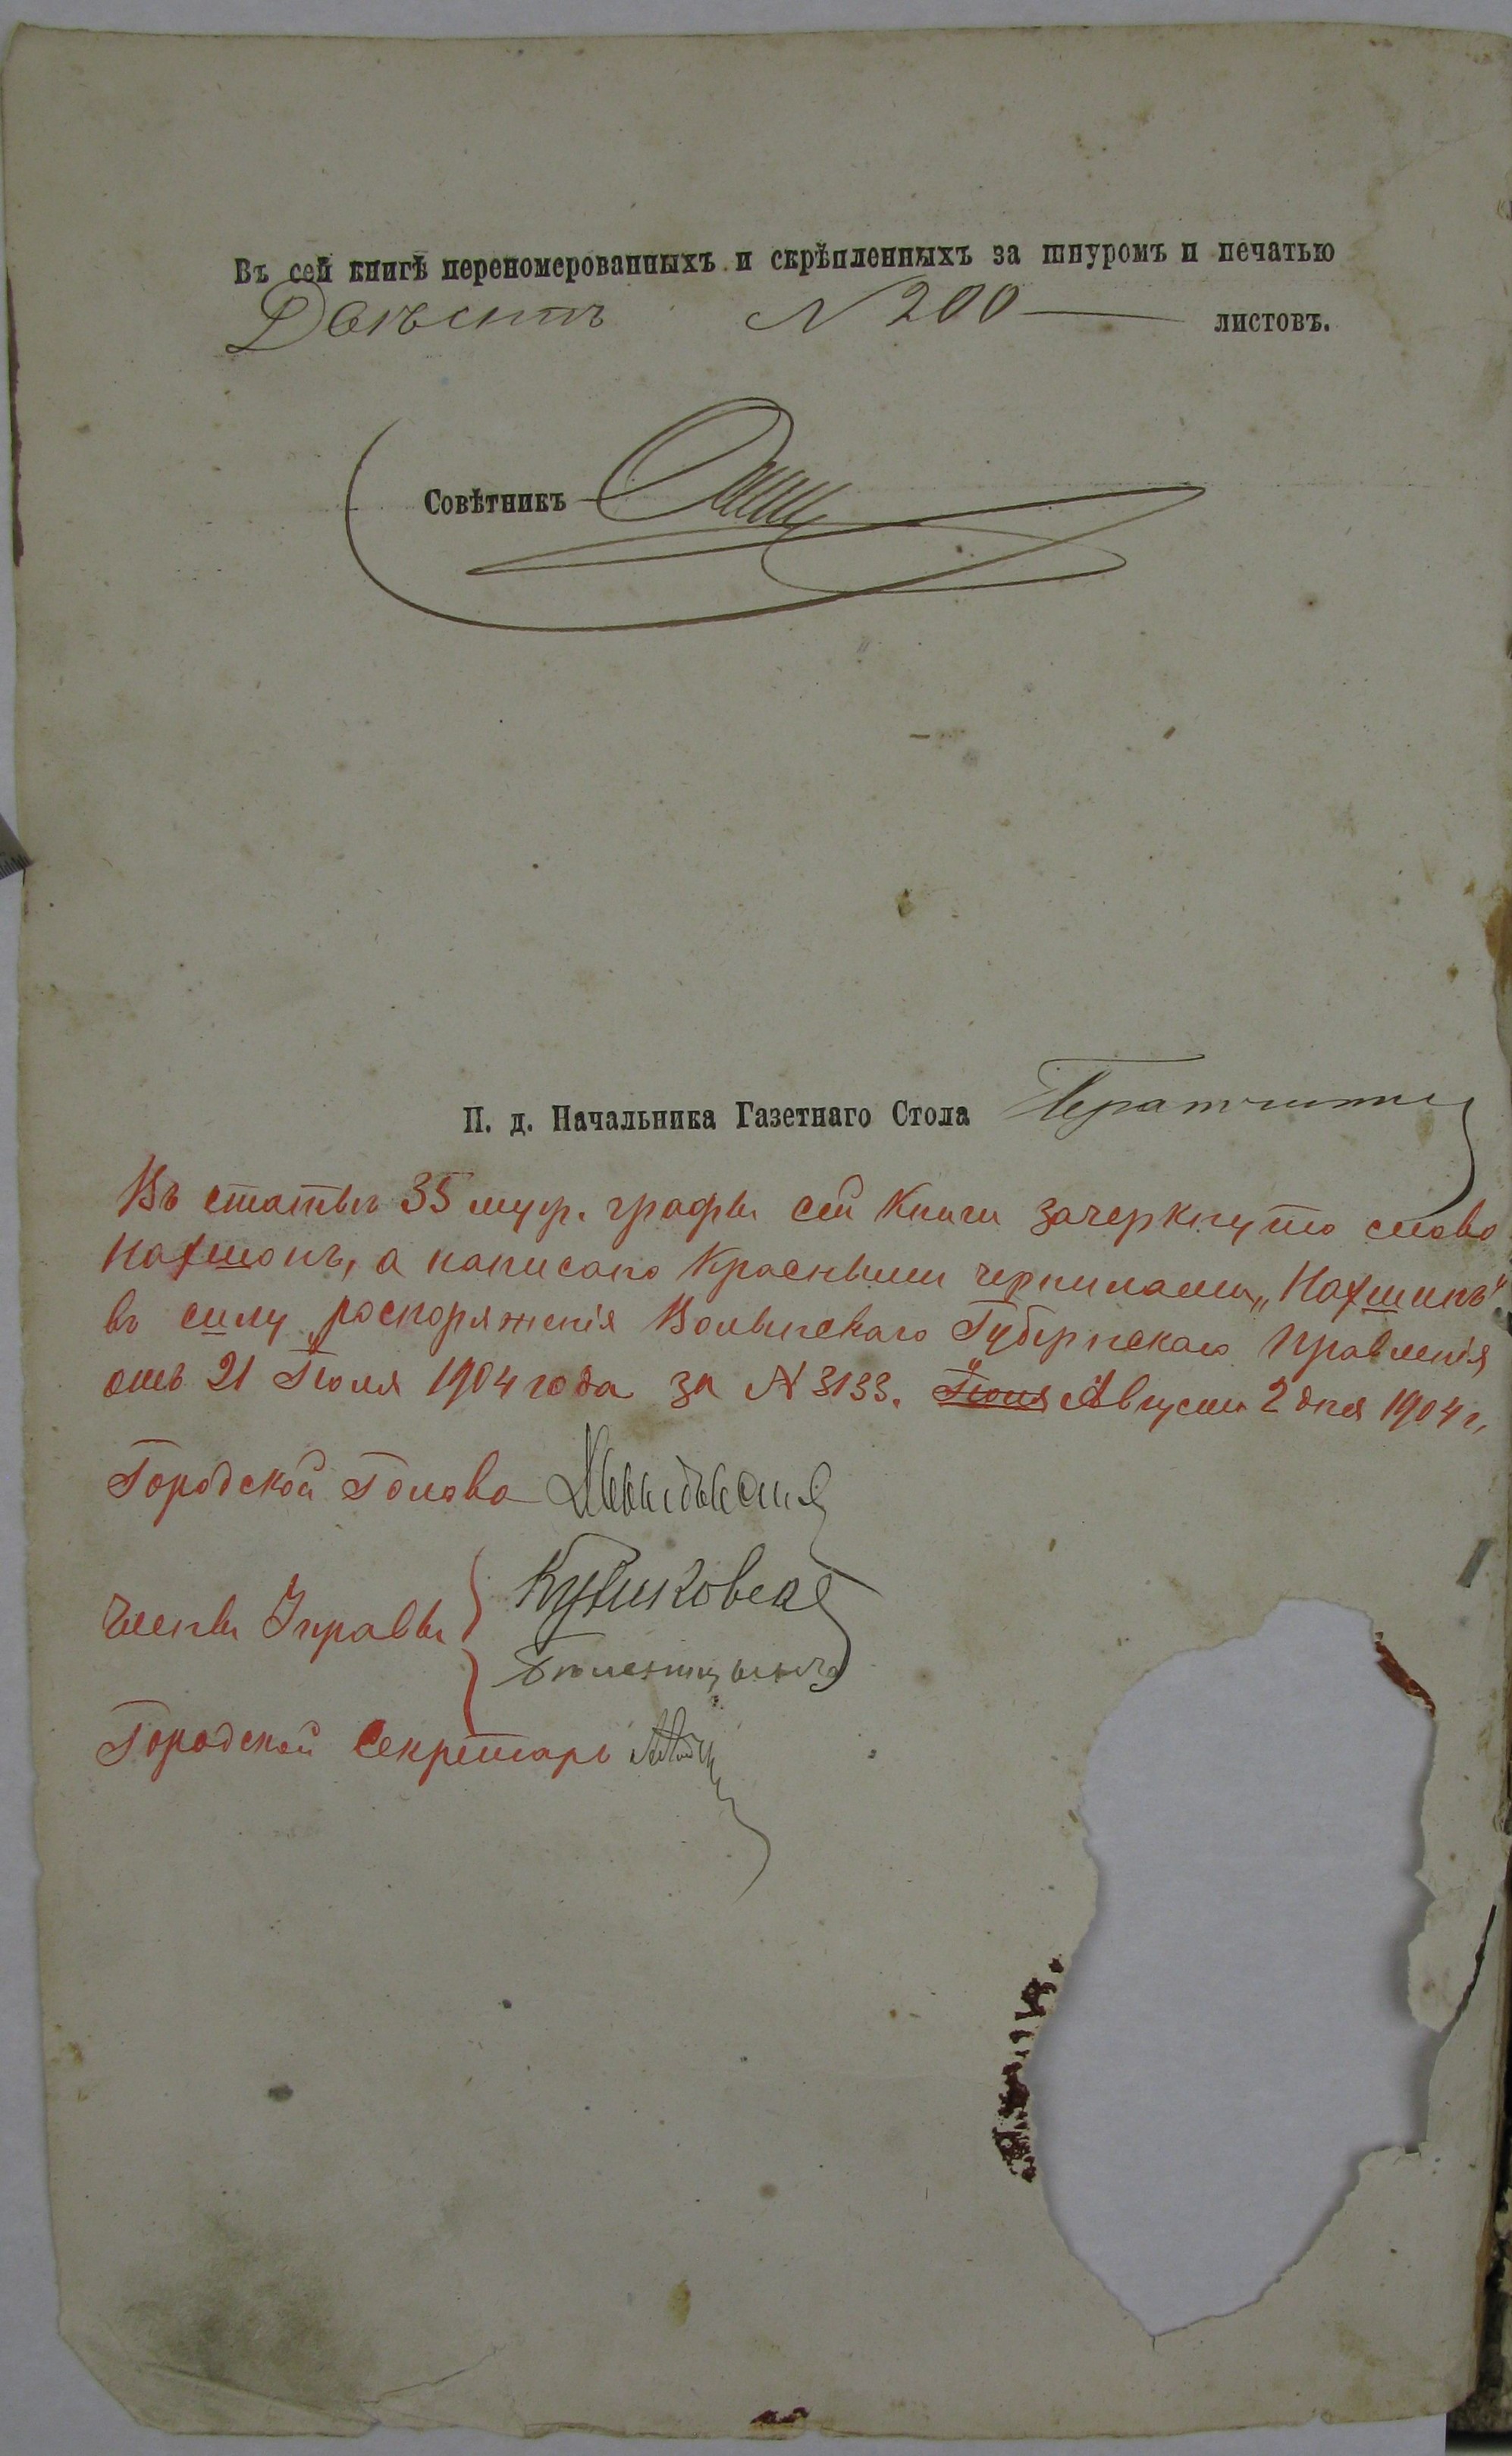 Въ сей книгѣ переномерованныхъ и скрѣпленныхъ за шнуромъ и печатью
Двѣсти № 200 листовъ.
Совѣтникъ
П. д. Начальника Газетнаго Стола
Въ статьѣ 35 муж. графы сей книги зачеркнуто слово
Нахшонъ, а написано красными чернилами „Нахшинъ"
въ силу распоряженія Волынскаго Губернскаго Правленія
отъ 21 Іюля 1904 года за № 3133. Іюля Августа 2 дня 1904 г.
Городской Голова
Члены Управы
Городской Секретарь